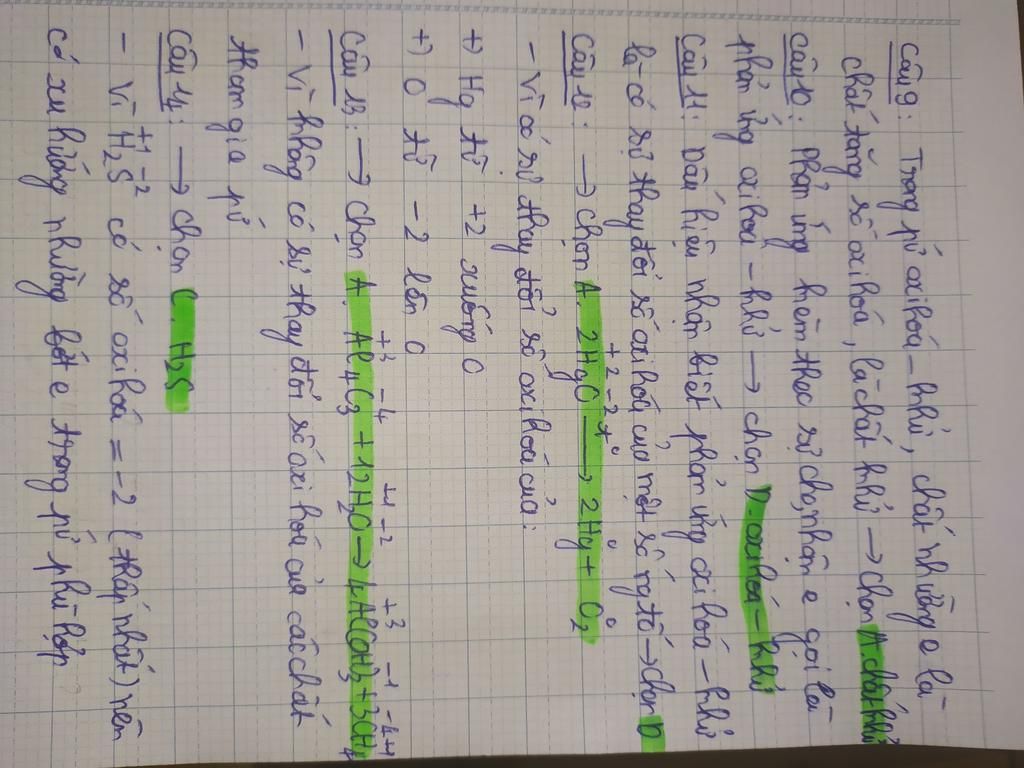 Câu 9: Trong pứ oxi hoá - khử, chất nhường e là
chất tăng số oxi hoá, là chất khử → chọn A. chất khử
Câu 10: Phản ứng kèm theo sự cho, nhận e gọi là
phản ứng oxi hoá - khử → chọn D. oxi hoá - khử
Câu 11: Dấu hiệu nhận biết phản ứng oxi hoá - khử
là có sự thay đổi số oxi hoá của một số ng tố → chọn D
+2 -2 t° 0 0
Câu 12: → chọn A 2HgO → 2Hg + O2
- Vì có sự thay đổi số oxi hoá của:
+) Hg từ +2 xuống 0
+) O từ -2 lên 0
+3 -4 +1 -2 +3 -1 -4+1
Câu 13: → chọn A. Al4C3 + 12H2O → 4Al(OH)3 + 3CH4
- Vì không có sự thay đổi số oxi hoá của các chất
tham gia pứ
Câu 14: → chọn C. H2S
+1 -2
- Vì H2S có số oxi hoá = -2 (thấp nhất) nên
có xu hướng nhường e trong pứ phù hợp